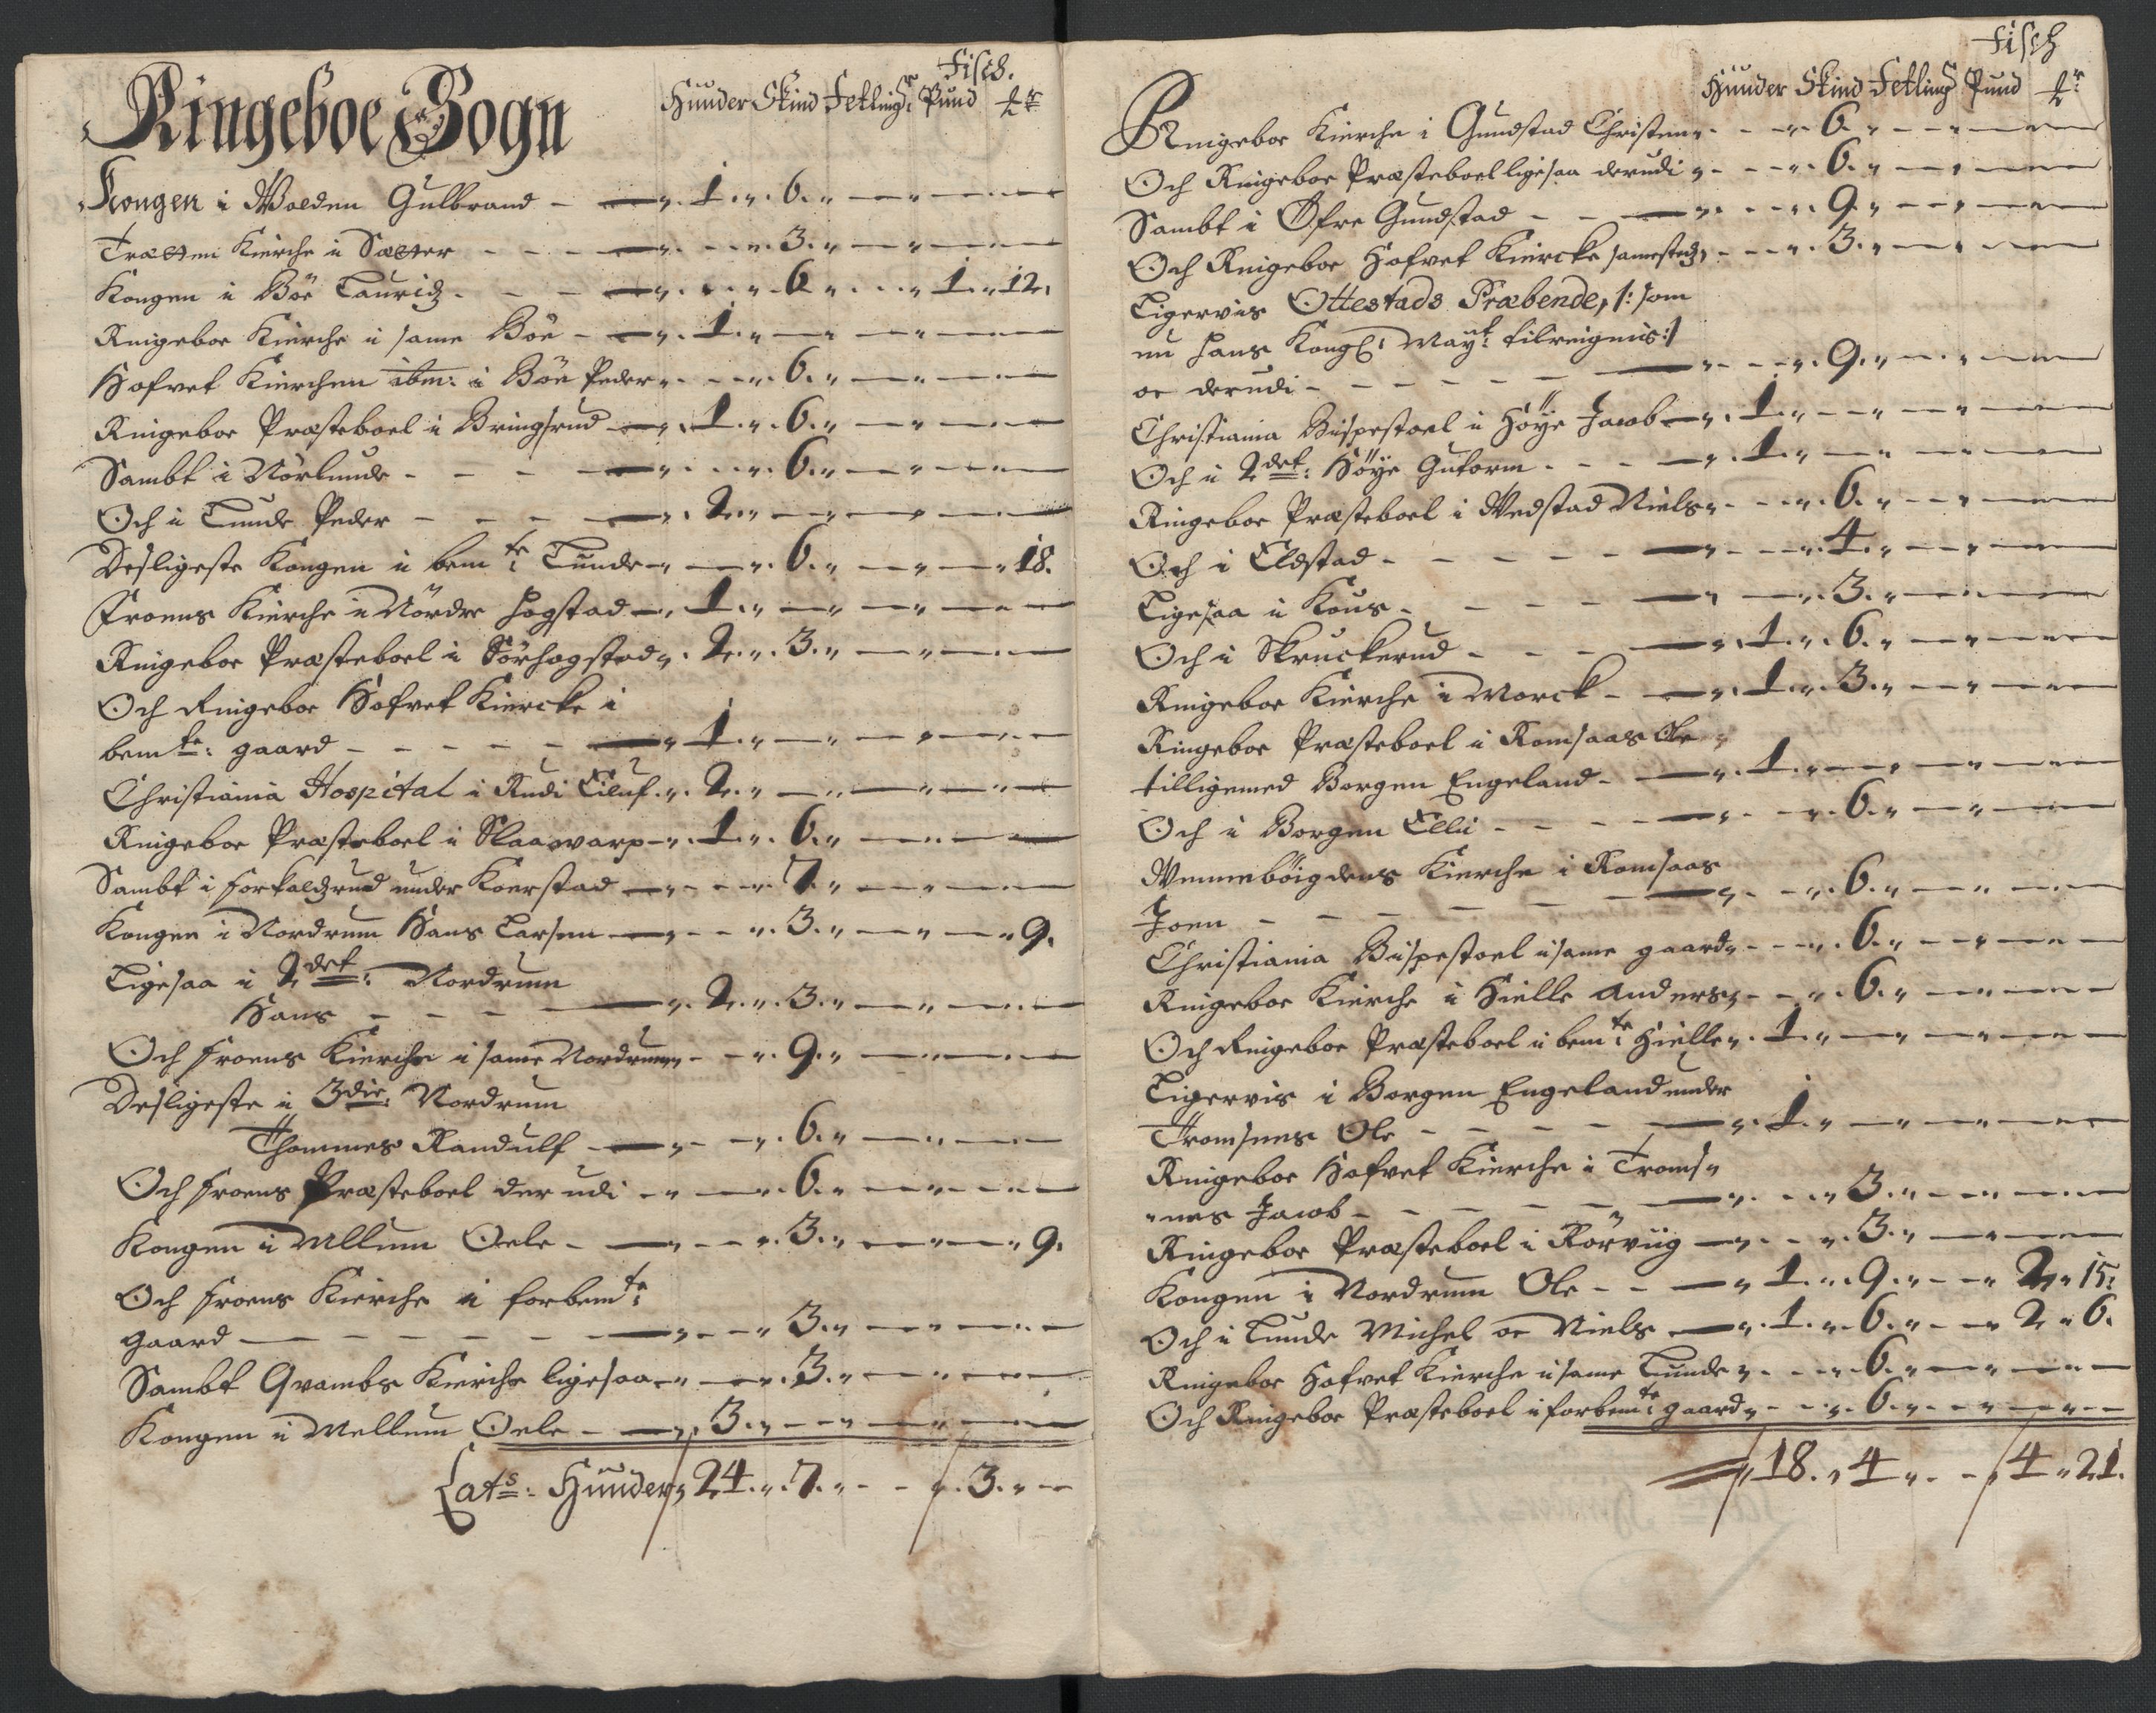 Ringeboe Sogn
Fisch.
Hunder Skind Fetlingr Pund
Kongen i Wolden Gulbrand - 1. 6.
Trætten Kirche i Sætter - 3.
Kongen i Böe Lauridz - 6. 1. 12.
Ringeboe Kierche i same Böe - 1.
Hofvet Kierchen ibm: i Böe Peder - 6.
Ringeboe Præsteboel i Bringsrud - 1. 6.
Sambt i Nörlunde - 6.
Och i Lunde Peder - 2.
Desligeste Kongen i bemte: Lunde - 6. 18.
Froens Kierche i Nördre Hogstad - 1.
Ringeboe Præsteboel i Sörhogstad 2. 3.
Och Ringeboe Hofvet Kiercke i
bemte: gaard - 1.
Christiania Hospital i Rudi Eiluf 2.
Ringeboe Præsteboel i Slaasvarp - 1. 6.
Sambt i Forkaldzrud under Koerstad - 7.
Kongen i Nordrum Hans Larsen - 3. 9.
Ligesaa i 2det: Nordrum
Hans - 2. 3.
Och Froens Kierche i same Nordrum - 9.
Desligeste i 3die: Nordrum
Thommes Randulf - 6.
Och Froens Præsteboel der udi - 6.
Kongen i Mellum Oele - 3. 9.
Och Froens Kierche i forbemte:
gaard - 3.
Sambt Qvambs Kierche ligesaa - 3.
Kongen i Mellum Oele - 3.
Lats: Hunder 24. 7. - 3.
Fisch
Hunder Skind Fetling Pund
Ringeboe Kierche i Gundstad Christen - 6.
Och Ringeboe Præsteboel ligesaa derudi - 6.
Sambt i Öfre Gundstad - 9.
Och Ringeboe Hofvet Kiercke samestedz - 3.
Ligervis Ottestads Præbende, /: som
nu Hans Kongl: Mayt: tilreignis :/
oc derudi - 9.
Christiania Bispestoel i Höye Jacob - 1.
Och i 2det: Höye Guttorm - 1.
Ringeboe Præsteboel i Wedstad Niels - 6.
Och i Eldstad - 4.
Ligesaa i Kous - 3.
Och i Skruckerud - 1. 6.
Ringeboe Kierche i Morck - 1. 3.
Ringeboe Præsteboel i Romsaas Ole
tilligemed Borgen Engeland - 1.
Och i Borgen Elli - 6.
Wenneböigdens Kierche i Romsaas
Joen - 6.
Christiania Bispestoel i same gaard - 6.
Ringeboe Kierche i Hielle Anders - 6.
Och Ringeboe Præsteboel i bemte: Hielle 1.
Ligervis i Borgen Engeland under
Tromsnes Ole - 1.
Ringeboe Hofvet Kierche i Troms
nes Jacob - 3.
Ringeboe Præsteboel i Rörviig - 3.
Kongen i Nordrum Ole - 1. 9. - 2. 15.
Och i Lunde Michel oc Niels - 1. 6. - 2. 6.
Ringeboe Hofvet Kierche i same Lunde - 6.
Och Ringeboe Præsteboel i forbemte: gaard - 6.
18. 4. - 4. 21.